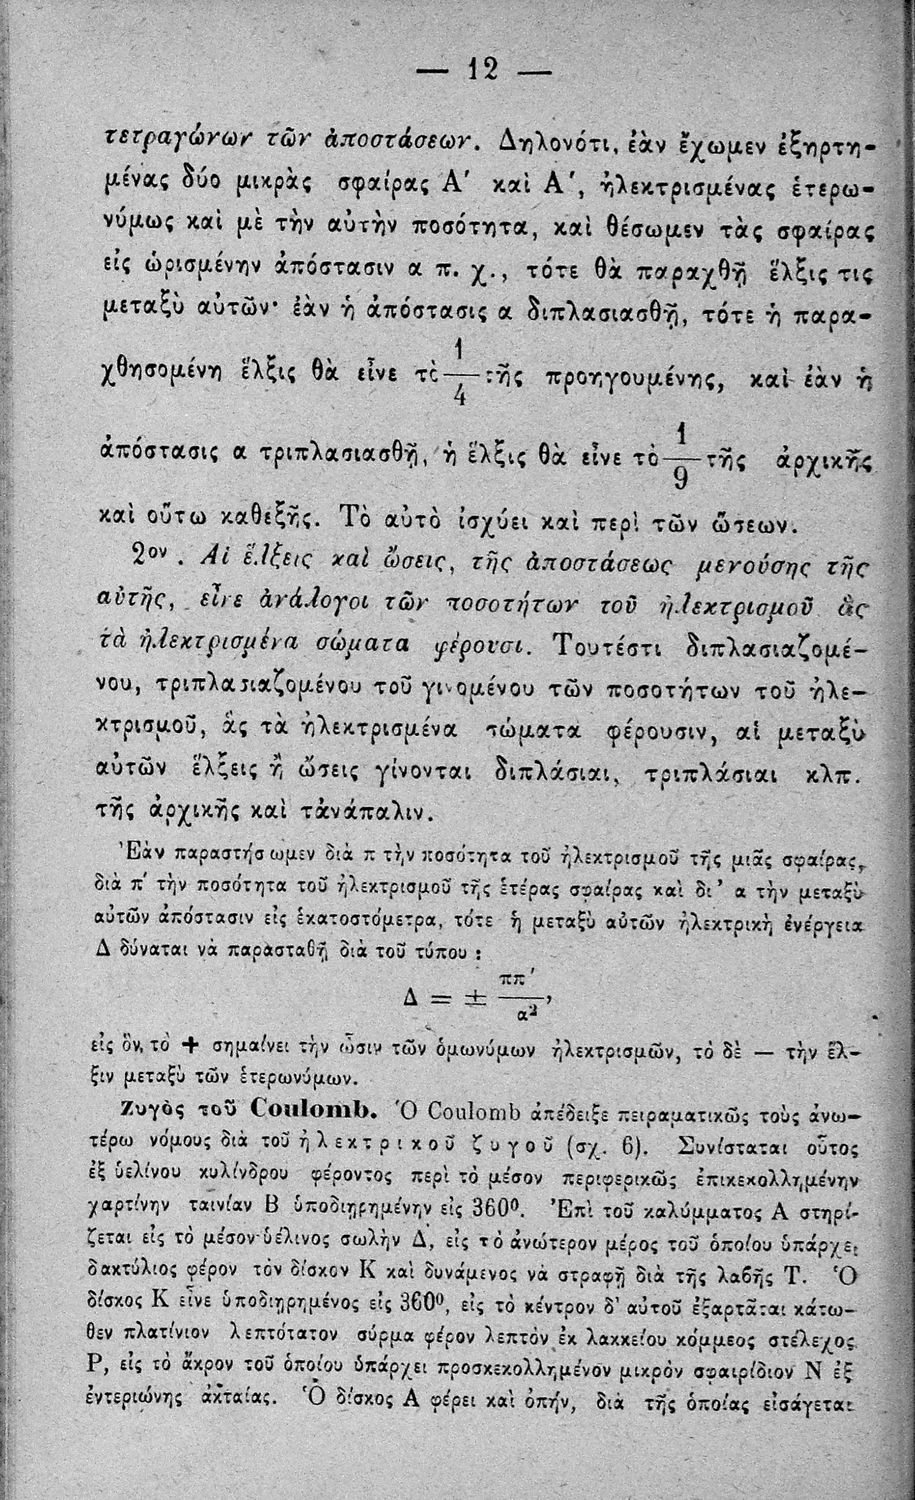 — 12 —
τετραγώνων τῶν ἀποστάσεων. Δηλονότι, ἐὰν ἔχωμεν ἐξηρτη-
μένας δύο μικρὰς σφαίρας Α′ καὶ Α′, ἠλεκτρισμένας ἑτερω-
νύμως καὶ μὲ τὴν αὐτὴν ποσότητα, καὶ θέσωμεν τὰς σφαίρας
εἰς ὡρισμένην ἀπόστασιν α π. χ., τότε θὰ παραχθῇ ἕλξις τις
μεταξὺ αὐτῶν· ἐὰν ἡ ἀπόστασις α διπλασιασθῇ, τότε ἡ παρα-
χθησομένη ἕλξις θὰ εἶνε τὸ 1/4 τῆς προηγουμένης, καὶ ἐὰν ἡ
ἀπόστασις α τριπλασιασθῇ, ἡ ἕλξις θὰ εἶνε τὸ 1/9 τῆς ἀρχικῆς
καὶ οὕτω καθεξῆς. Τὸ αὐτὸ ἰσχύει καὶ περὶ τῶν ὤσεων.
2ον. Αἱ ἕλξεις καὶ ὤσεις, τῆς ἀποστάσεως μενούσης τῆς
αὐτῆς, εἶνε ἀνάλογοι τῶν ποσοτήτων τοῦ ἠλεκτρισμοῦ ἃς
τὰ ἠλεκτρισμένα σώματα φέρουσι. Τουτέστι διπλασιαζομέ-
νου, τριπλασιαζομένου τοῦ γινομένου τῶν ποσοτήτων τοῦ ἠλε-
κτρισμοῦ, ἃς τὰ ἠλεκτρισμένα σώματα φέρουσιν, αἱ μεταξὺ
αὐτῶν ἕλξεις ἢ ὤσεις γίνονται διπλάσιαι, τριπλάσιαι κλπ.
τῆς ἀρχικῆς καὶ τἀνάπαλιν.
Ἐὰν παραστήσωμεν διὰ π τὴν ποσότητα τοῦ ἠλεκτρισμοῦ τῆς μιᾶς σφαίρας,
διὰ π′ τὴν ποσότητα τοῦ ἠλεκτρισμοῦ τῆς ἑτέρας σφαίρας καὶ δι' α τὴν μεταξὺ
αὐτῶν ἀπόστασιν εἰς ἑκατοστόμετρα, τότε ἡ μεταξὺ αὐτῶν ἠλεκτρικὴ ἐνέργεια
Δ δύναται νὰ παρασταθῇ διὰ τοῦ τύπου :
Δ = ± ππ′/α², 
εἰς ὃν, τὸ + σημαίνει τὴν ὦσιν τῶν ὁμωνύμων ἠλεκτρισμῶν, τὸ δὲ — τὴν ἕλ-
ξιν μεταξὺ τῶν ἑτερωνύμων.
Ζυγὸς τοῦ Coulomb. Ὁ Coulomb ἀπέδειξε πειραματικῶς τοὺς ἀνω-
τέρω νόμους διὰ τοῦ ἠλεκτρικοῦ ζυγοῦ (σχ. 6). Συνίσταται οὗτος
ἐξ ὑελίνου κυλίνδρου φέροντος περὶ τὸ μέσον περιφερικῶς ἐπικεκολλημένην
χαρτίνην ταινίαν Β ὑποδιῃρημένην εἰς 360⁰. Ἐπὶ τοῦ καλύμματος Α στηρί-
ζεται εἰς τὸ μέσον ὑέλινος σωλὴν Δ, εἰς τὸ ἀνώτερον μέρος τοῦ ὁποίου ὑπάρχει
δακτύλιος φέρον τὸν δίσκον Κ καὶ δυνάμενος νὰ στραφῇ διὰ τῆς λαβῆς Τ. Ὁ
δίσκος Κ εἶνε ὑποδιῃρημένος εἰς 360⁰, εἰς τὸ κέντρον δ' αὐτοῦ ἐξαρτᾶται κάτω-
θεν πλατίνιον λεπτότατον σύρμα φέρον λεπτὸν ἐκ λακκείου κόμμεος στέλεχος
Ρ, εἰς τὸ ἄκρον τοῦ ὁποίου ὑπάρχει προσκεκολλημένον μικρὸν σφαιρίδιον Ν ἐξ
ἐντεριώνης ἀκταίας. Ὁ δίσκος Α φέρει καὶ ὀπήν, διὰ τῆς ὁποίας εἰσάγεται